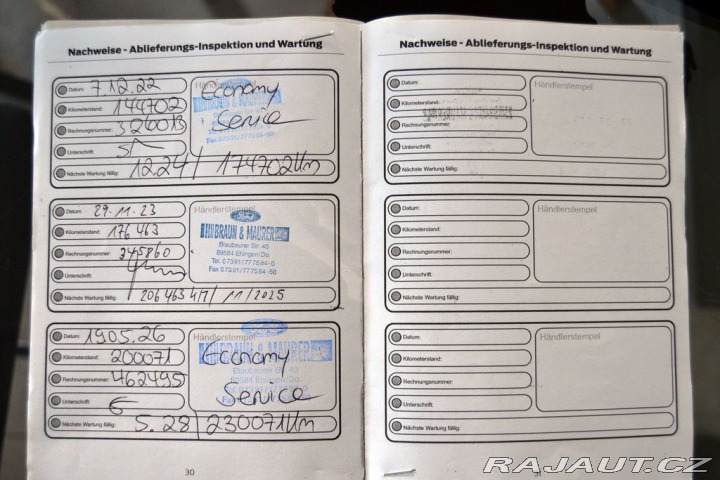 Nachweise - Ablieferungs-Inspektion und Wartung
Datum: 7.12.22
Händlerstempel
Economy
Kilometerstand: 144702
BRAUN & MAURER
Rechnungsnummer:
Service
Fax 07391/7775 84-50
Unterschrift:
Nächste Wartung fällig: 12.24 / 174702km
Datum: 29.11.23
Händlerstempel
Ford
Kilometerstand: 176463
BRAUN & MAURER
Blaubeurer Str. 40
Rechnungsnummer: 345860
89584 Ehingen/Do.
Tel. 07391/7775 84-0
Unterschrift:
Fax 07391/7775 84-50
Nächste Wartung fällig: 206463 / 11/2025
Datum: 19.05.26
Händlerstempel
Ford
Kilometerstand: 200071
Economy
BRAUN & MAURER
Blaubeurer Str. 40
Rechnungsnummer: 462495
89584 Ehingen/Do.
Unterschrift:
Service
Nächste Wartung fällig: 5.28 / 230071km
30
Nachweise - Ablieferungs-Inspektion und Wartung
Datum:
Händlerstempel
Kilometerstand:
Rechnungsnummer:
Unterschrift:
Nächste Wartung fällig:
Datum:
Händlerstempel
Kilometerstand:
Rechnungsnummer:
Unterschrift:
Nächste Wartung fällig:
Datum:
Händlerstempel
Kilometerstand:
Rechnungsnummer:
Unterschrift:
Nächste Wartung fällig:
31
RAJAUT.CZ